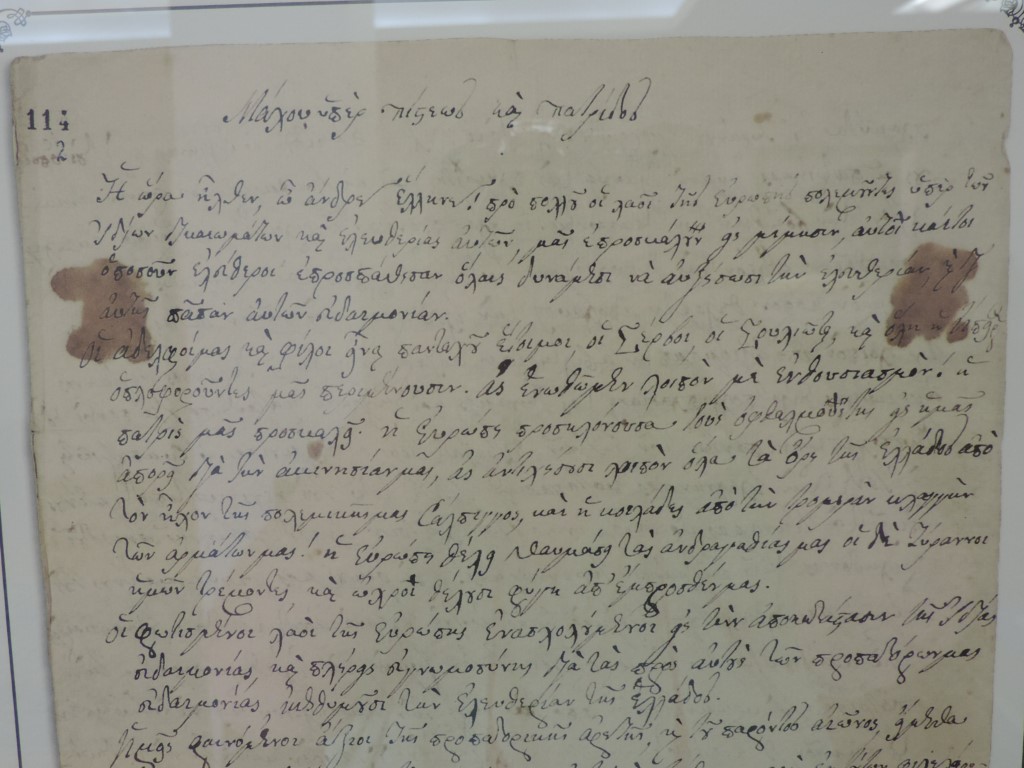 114
2
Μάχου ὑπὲρ πίστεως καὶ πατρίδος
Ἡ ὥρα ἦλθεν, ὦ ἄνδρες Ἕλληνες! πρὸ πολλοῦ οἱ λαοὶ τῆς Εὐρώπης πολεμοῦντες ὑπὲρ τῶν
ἰδίων δικαιωμάτων καὶ ἐλευθερίας αὐτῶν, μᾶς ἐπροσκάλουν εἰς μίμησιν, αὐτοὶ καίτοι
ὁπωσοῦν ἐλεύθεροι ἐπροσπάθησαν ὅλαις δυνάμεσι νὰ αὐξήσωσι τὴν ἐλευθερίαν,
αὐτῆς πᾶσαν αὐτῶν εὐδαιμονίαν.
Οἱ ἀδελφοί μας καὶ φίλοι εἶναι πανταχοῦ ἕτοιμοι, οἱ Σέρβοι οἱ Σουλιῶται, καὶ ὅλη ἡ Ἤπειρος
ὁπλοφοροῦντες μᾶς περιμένουσιν. ἂς ἑνωθῶμεν λοιπὸν μὲ ἐνθουσιασμόν! ἡ
πατρὶς μᾶς προσκαλεῖ. ἡ Εὐρώπη προσηλόνουσα τοὺς ὀφθαλμοὺς της εἰς ἡμᾶς
ἀπορεῖ διὰ τὴν ἀκινησίαν μας, ἂς ἀντιχήσωσι λοιπὸν ὅλα τὰ ὄρη τῆς Ἑλλάδος ἀπὸ
τὸν ἦχον τῆς πολεμικῆς μας Σάλπιγγος, καὶ ἡ κοιλάδες ἀπὸ τὴν τρομερὰν κλαγγὴν
τῶν ἁρμάτων μας! ἡ Εὐρώπη θέλει θαυμάσῃ τὰς ἀνδραγαθίας μας οἱ δὲ Τύραννοι
ἡμῶν τρέμοντες καὶ ὠχροὶ θέλουσι φύγῃ ἀπ' ἔμπροσθέν μας.
Οἱ φωτισμένοι λαοὶ τῆς Εὐρώπης ἐνασχολούμενοι εἰς τὴν ἀποκατάστασιν τῆς ἰδίας
εὐδαιμονίας, καὶ πλήρεις εὐγνωμοσύνης διὰ τὰς πρὸς αὐτοὺς τῶν προπατόρων μας
εὐεργεσίας, ἐπιθυμοῦσι τὴν ἐλευθερίαν τῆς Ἑλλάδος.
Ἡμεῖς φαινόμενοι ἄξιοι τῆς προπατορικῆς ἀρετῆς, καὶ τοῦ παρόντος αἰῶνος, εἴμεθα